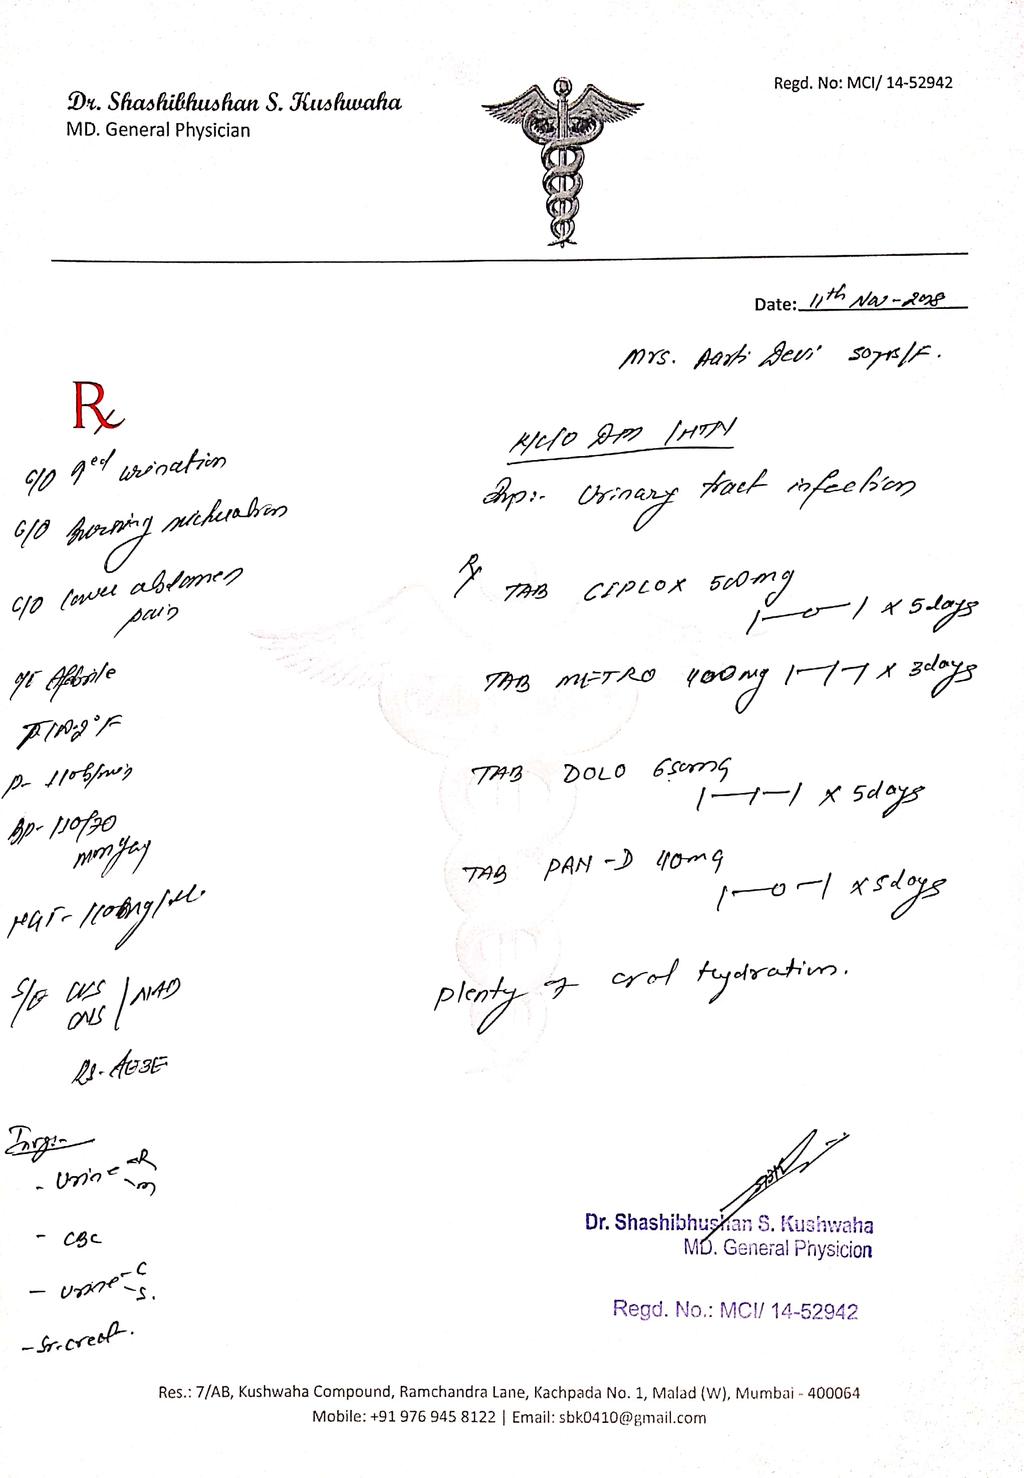 Dr. Shashibhushan S. Kushwaha
MD. General Physician
Regd. No: MCI/ 14-52942
Date: 11th Nov - 2018
Mrs. Aarti Devi 50yrs/F.
Rx
C/O ↑ed urination
C/O burning micturation
C/O lower abdomen
pain
O/E Afebrile
T 100.2°F
P- 110b/min
Bp- 110/70
mmHg
HGT- 110mg/dl.
S/E CVS
CNS / NAD
RS- AEBE
Invg:-
- Urine -R
-m
- CBC
- Urine -C
-S.
- Sr. creat.
K/C/O DM / HTN
Imp:- Urinary tract infection
Rx TAB CIPLOX 500mg
1—0—1 x 5days
TAB METRO 400mg 1—1—1 x 3days
TAB DOLO 650mg
1—1—1 x 5days
TAB PAN-D 40mg
1—0—1 x 5days
Plenty of oral hydration.
Dr. Shashibhushan S. Kushwaha
MD. General Physicion
Regd. No.: MCI/ 14-52942
Res.: 7/AB, Kushwaha Compound, Ramchandra Lane, Kachpada No. 1, Malad (W), Mumbai - 400064
Mobile: +91 976 945 8122 | Email: sbk0410@gmail.com